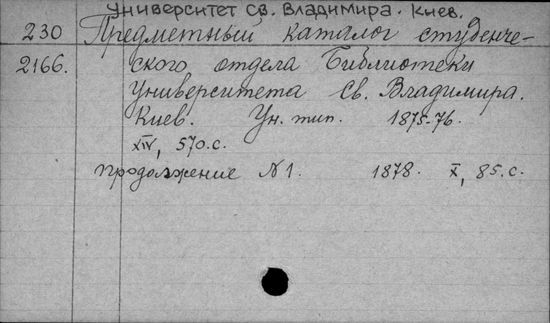 Университет Св. Владимира. Киев.
230 Предметный каталог студенче-
2166. ского отдела Библиотеки
Университета Св. Владимира.
Киев. Ун. тип. 1875-76.
XIV, 570.с.
продолжение N1. 1878. X, 85.с.